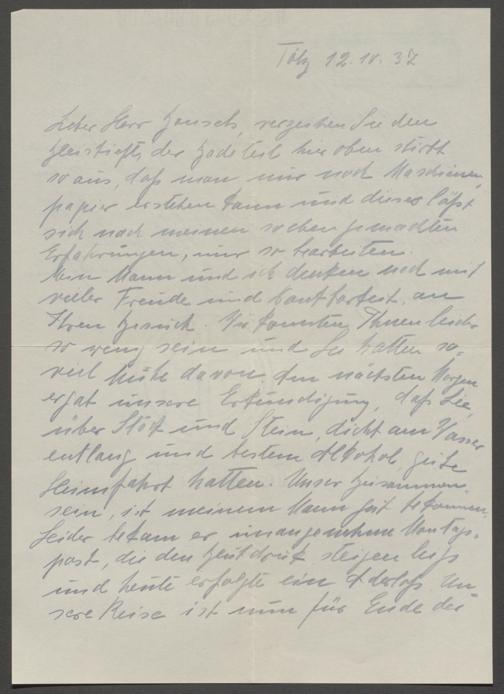 Tölz 12.IV.37
Lieber Herr Hansch, verzeihen Sie den
Bleistift, der Badeteil hier oben stirbt
so aus, daß man nur noch Maschinen-
papier erstehen kann und dieses läßt
sich nach meinen soeben gemachten
Erfahrungen, nur so bearbeiten.
Mein Mann und ich denken noch mit
vieler Freude und Dankbarkeit an
Ihren Besuch. Wir konnten Ihnen leider
so wenig sein und Sie hatten so-
viel Mühe davon. Am nächsten Morgen
ergab unsere Erkundigung, daß Sie,
über Stock und Stein, dicht am Wasser
entlang und bestem Alkohol, gute
Heimfahrt hatten. Unser Zusammen-
sein, ist meinem Mann gut bekommen.
Leider bekam er unangenehme Montags-
post, die den Blutdruck steigen ließ
und heute erfolgte ein Aderlaß. Un-
sere Reise ist nun für Ende der